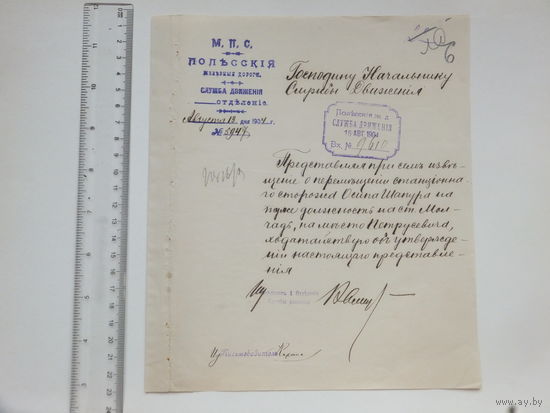 М. П. С.
ПОЛѢССКІЯ
ЖЕЛѢЗНЫЯ ДОРОГИ.
СЛУЖБА ДВИЖЕНІЯ
ОТДѢЛЕНІЕ.
Августа 13 дня 1904 г.
№ 5947
6
Господину Начальнику
Службы Движенія
Полѣсскія ж. д.
СЛУЖБА ДВИЖЕНІЯ
16 АВГ. 1904
Вх. № 9610
Представляя при семъ извѣ-
щеніе о перемѣщеніи станціонна-
го сторожа Осипа Шапура на
должность на ст. Мол-
чадь, на мѣсто Петрусевича,
ходатайствую объ утвержде-
ніи настоящаго представле-
нія
Дѣлопроизводитель
www.ay.by